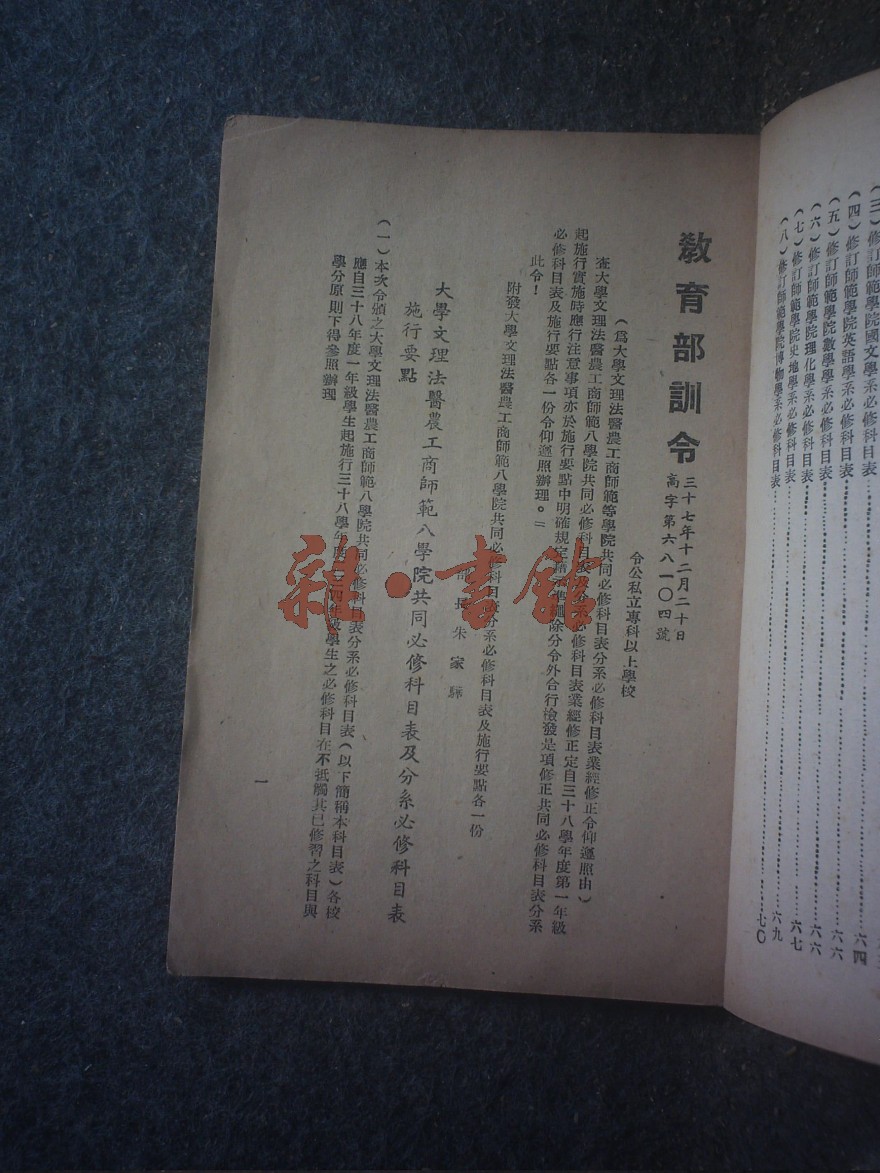 (三)修訂師範學院國文學系必修科目表
(四)修訂師範學院英語學系必修科目表……六四
(五)修訂師範學院數學學系必修科目表……六六
(六)修訂師範學院理化學系必修科目表……六六
(七)修訂師範學院史地學系必修科目表……六七
(八)修訂師範學院博物學系必修科目表……六九
七〇
教育部訓令
三十七年十二月二十日
高字第六八一〇四號
令公私立專科以上學校
(爲大學文理法醫農工商師範等學院共同必修科目表分系必修科目表業經修正令仰遵照由)
查大學文理法醫農工商師範八學院共同必修科目表及分系必修科目表業經修正定自三十八學年度第一年級
起施行實施時應行注意事項亦於施行要點中明確規定 除分令外合行檢發是項修正共同必修科目表分系
必修科目表及施行要點各一份令仰遵照辦理。
此令!
附發大學文理法醫農工商師範八學院共同必修科目表分系必修科目表及施行要點各一份
部長朱家驊
大學文理法醫農工商師範八學院共同必修科目表及分系必修科目表
施行要點
(一)本次令頒之大學文理法醫農工商師範八學院共同必修科目表分系必修科目表(以下簡稱本科目表)各校
應自三十八年度一年級學生起施行三十八學年度二三四年級學生之必修科目在不抵觸其已修習之科目與
學分原則下得參照辦理
一
雜·書館